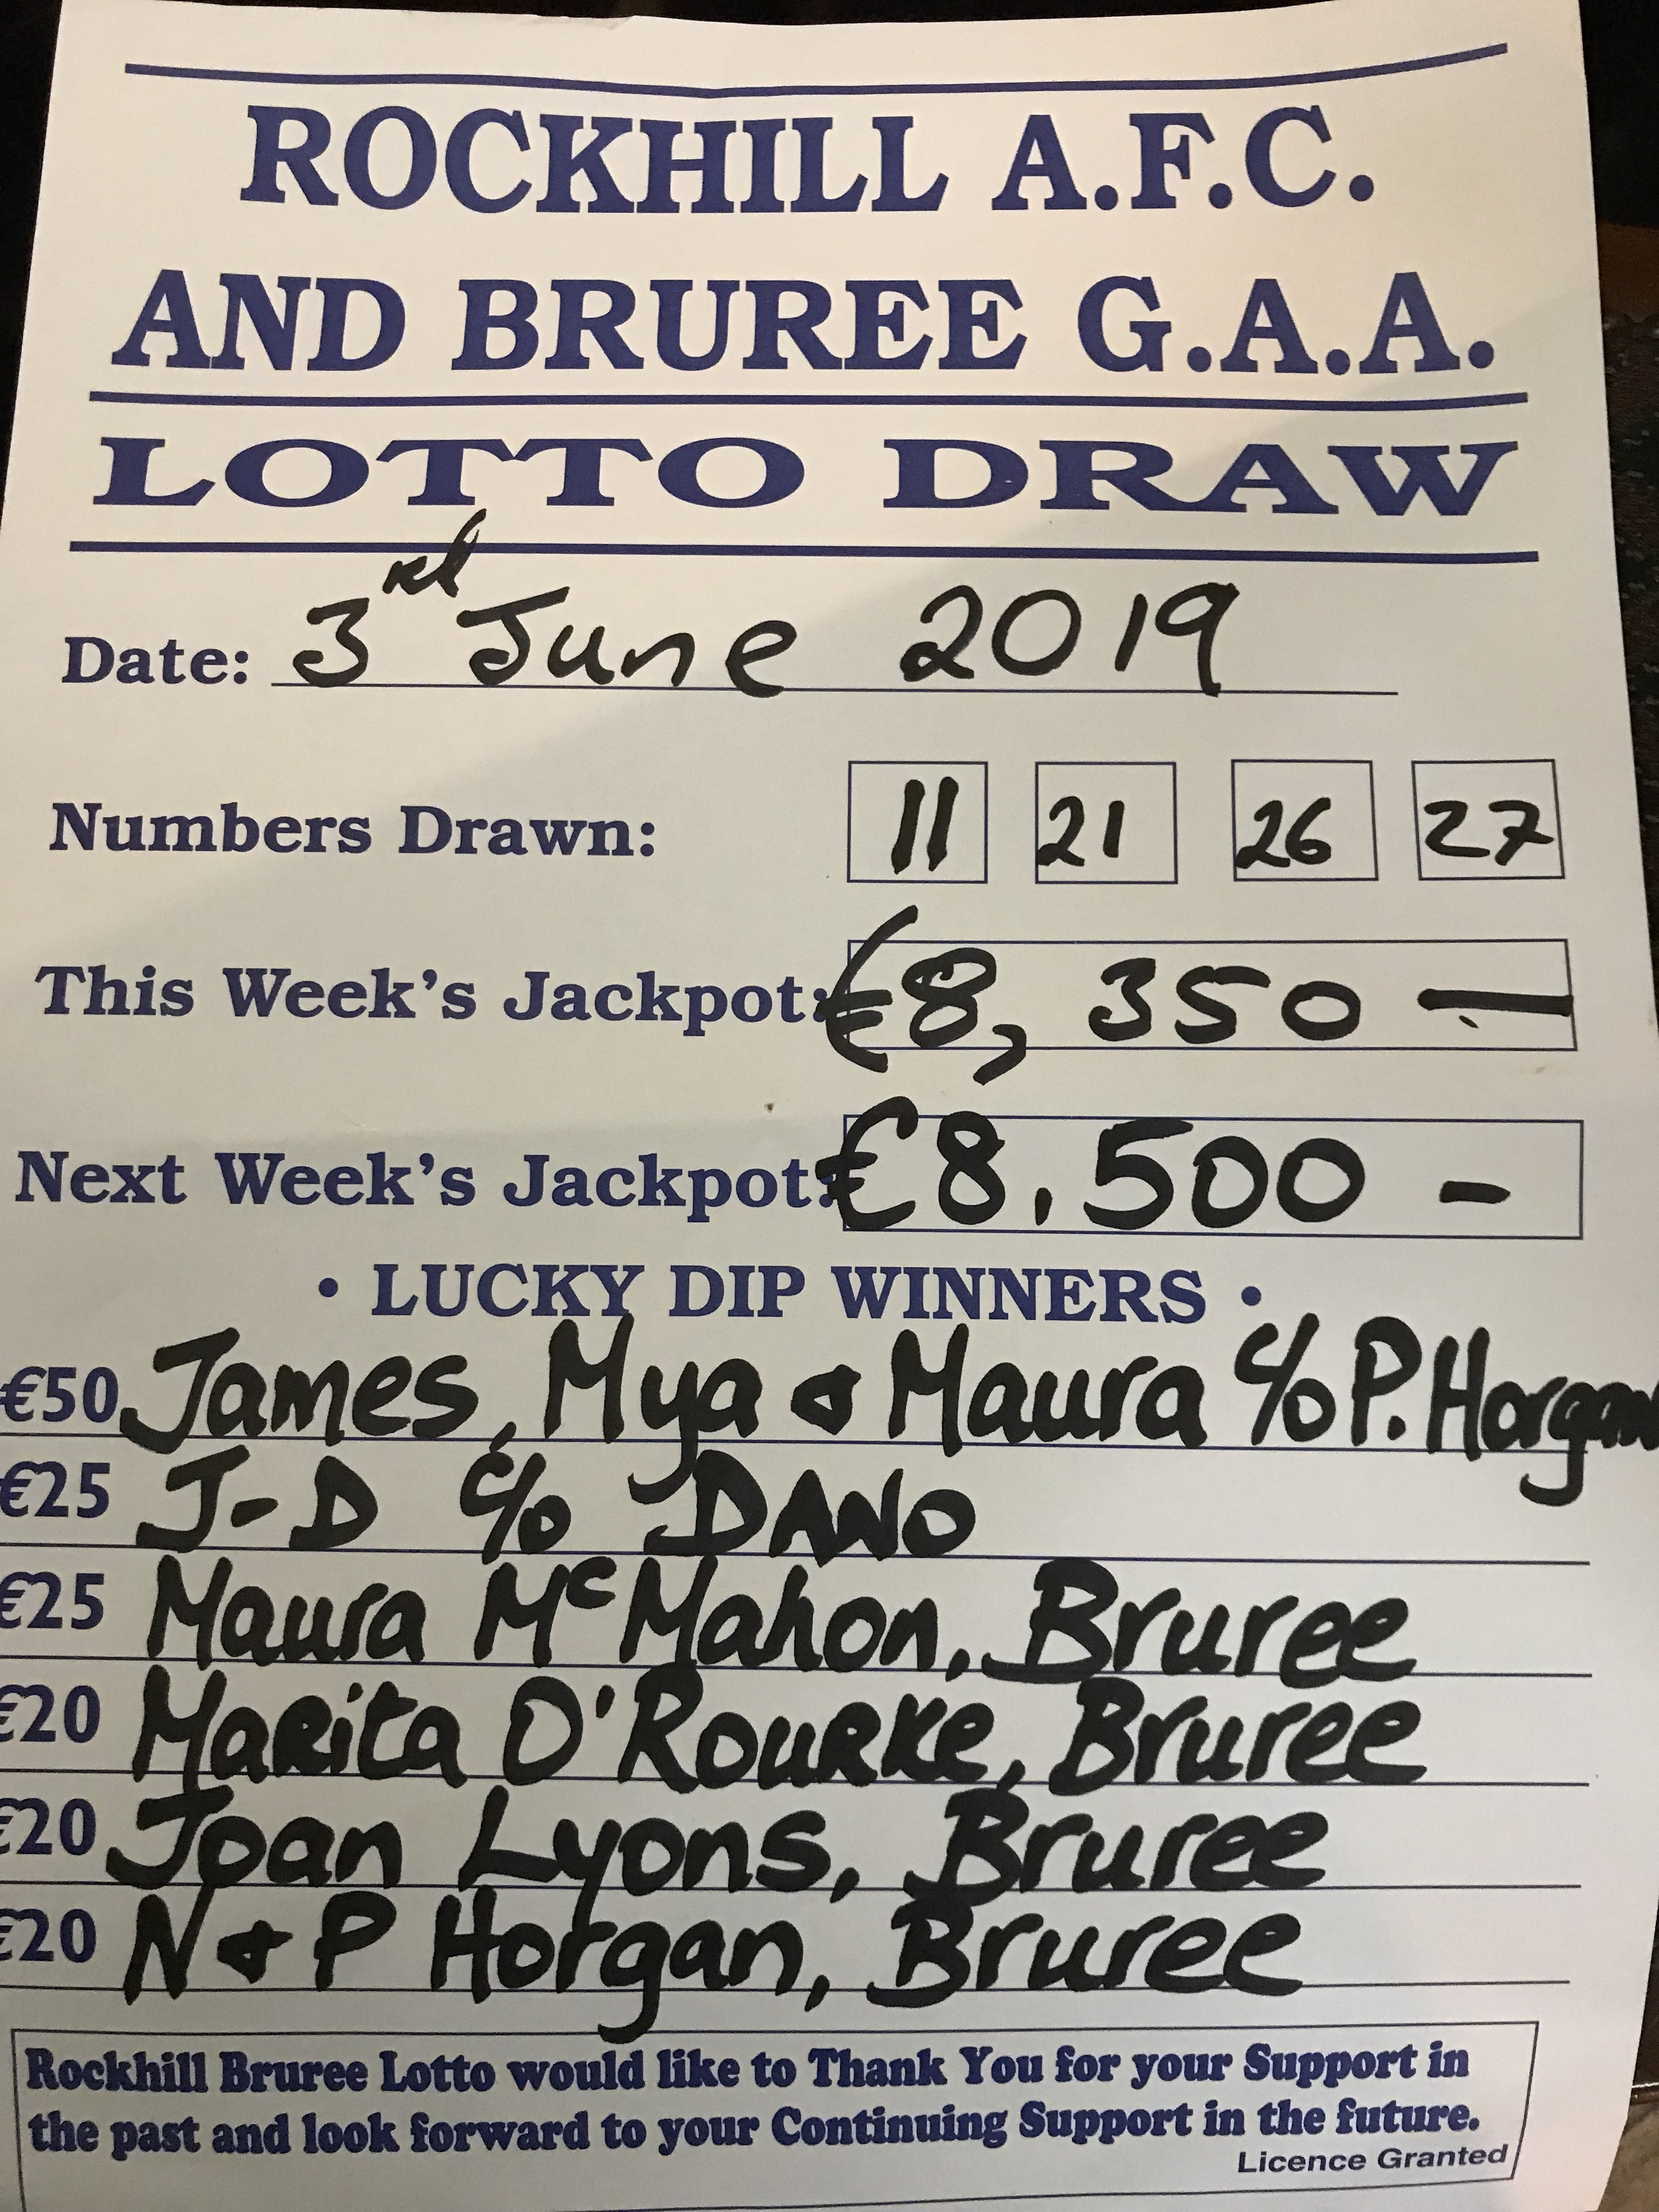 ROCKHILL A.F.C.
AND BRUREE G.A.A.
LOTTO DRAW
Date: 3rd June 2019
Numbers Drawn: 11 21 26 27
This Week's Jackpot: €8, 350 —
Next Week's Jackpot: €8,500 -
• LUCKY DIP WINNERS •
€50 James, Mya & Maura c/o P. Horgan
€25 J-D c/o DANO
€25 Maura McMahon, Bruree
€20 Marita O'Rourke, Bruree
€20 Joan Lyons, Bruree
€20 N & P Horgan, Bruree
Rockhill Bruree Lotto would like to Thank You for your Support in
the past and look forward to your Continuing Support in the future.
Licence Granted